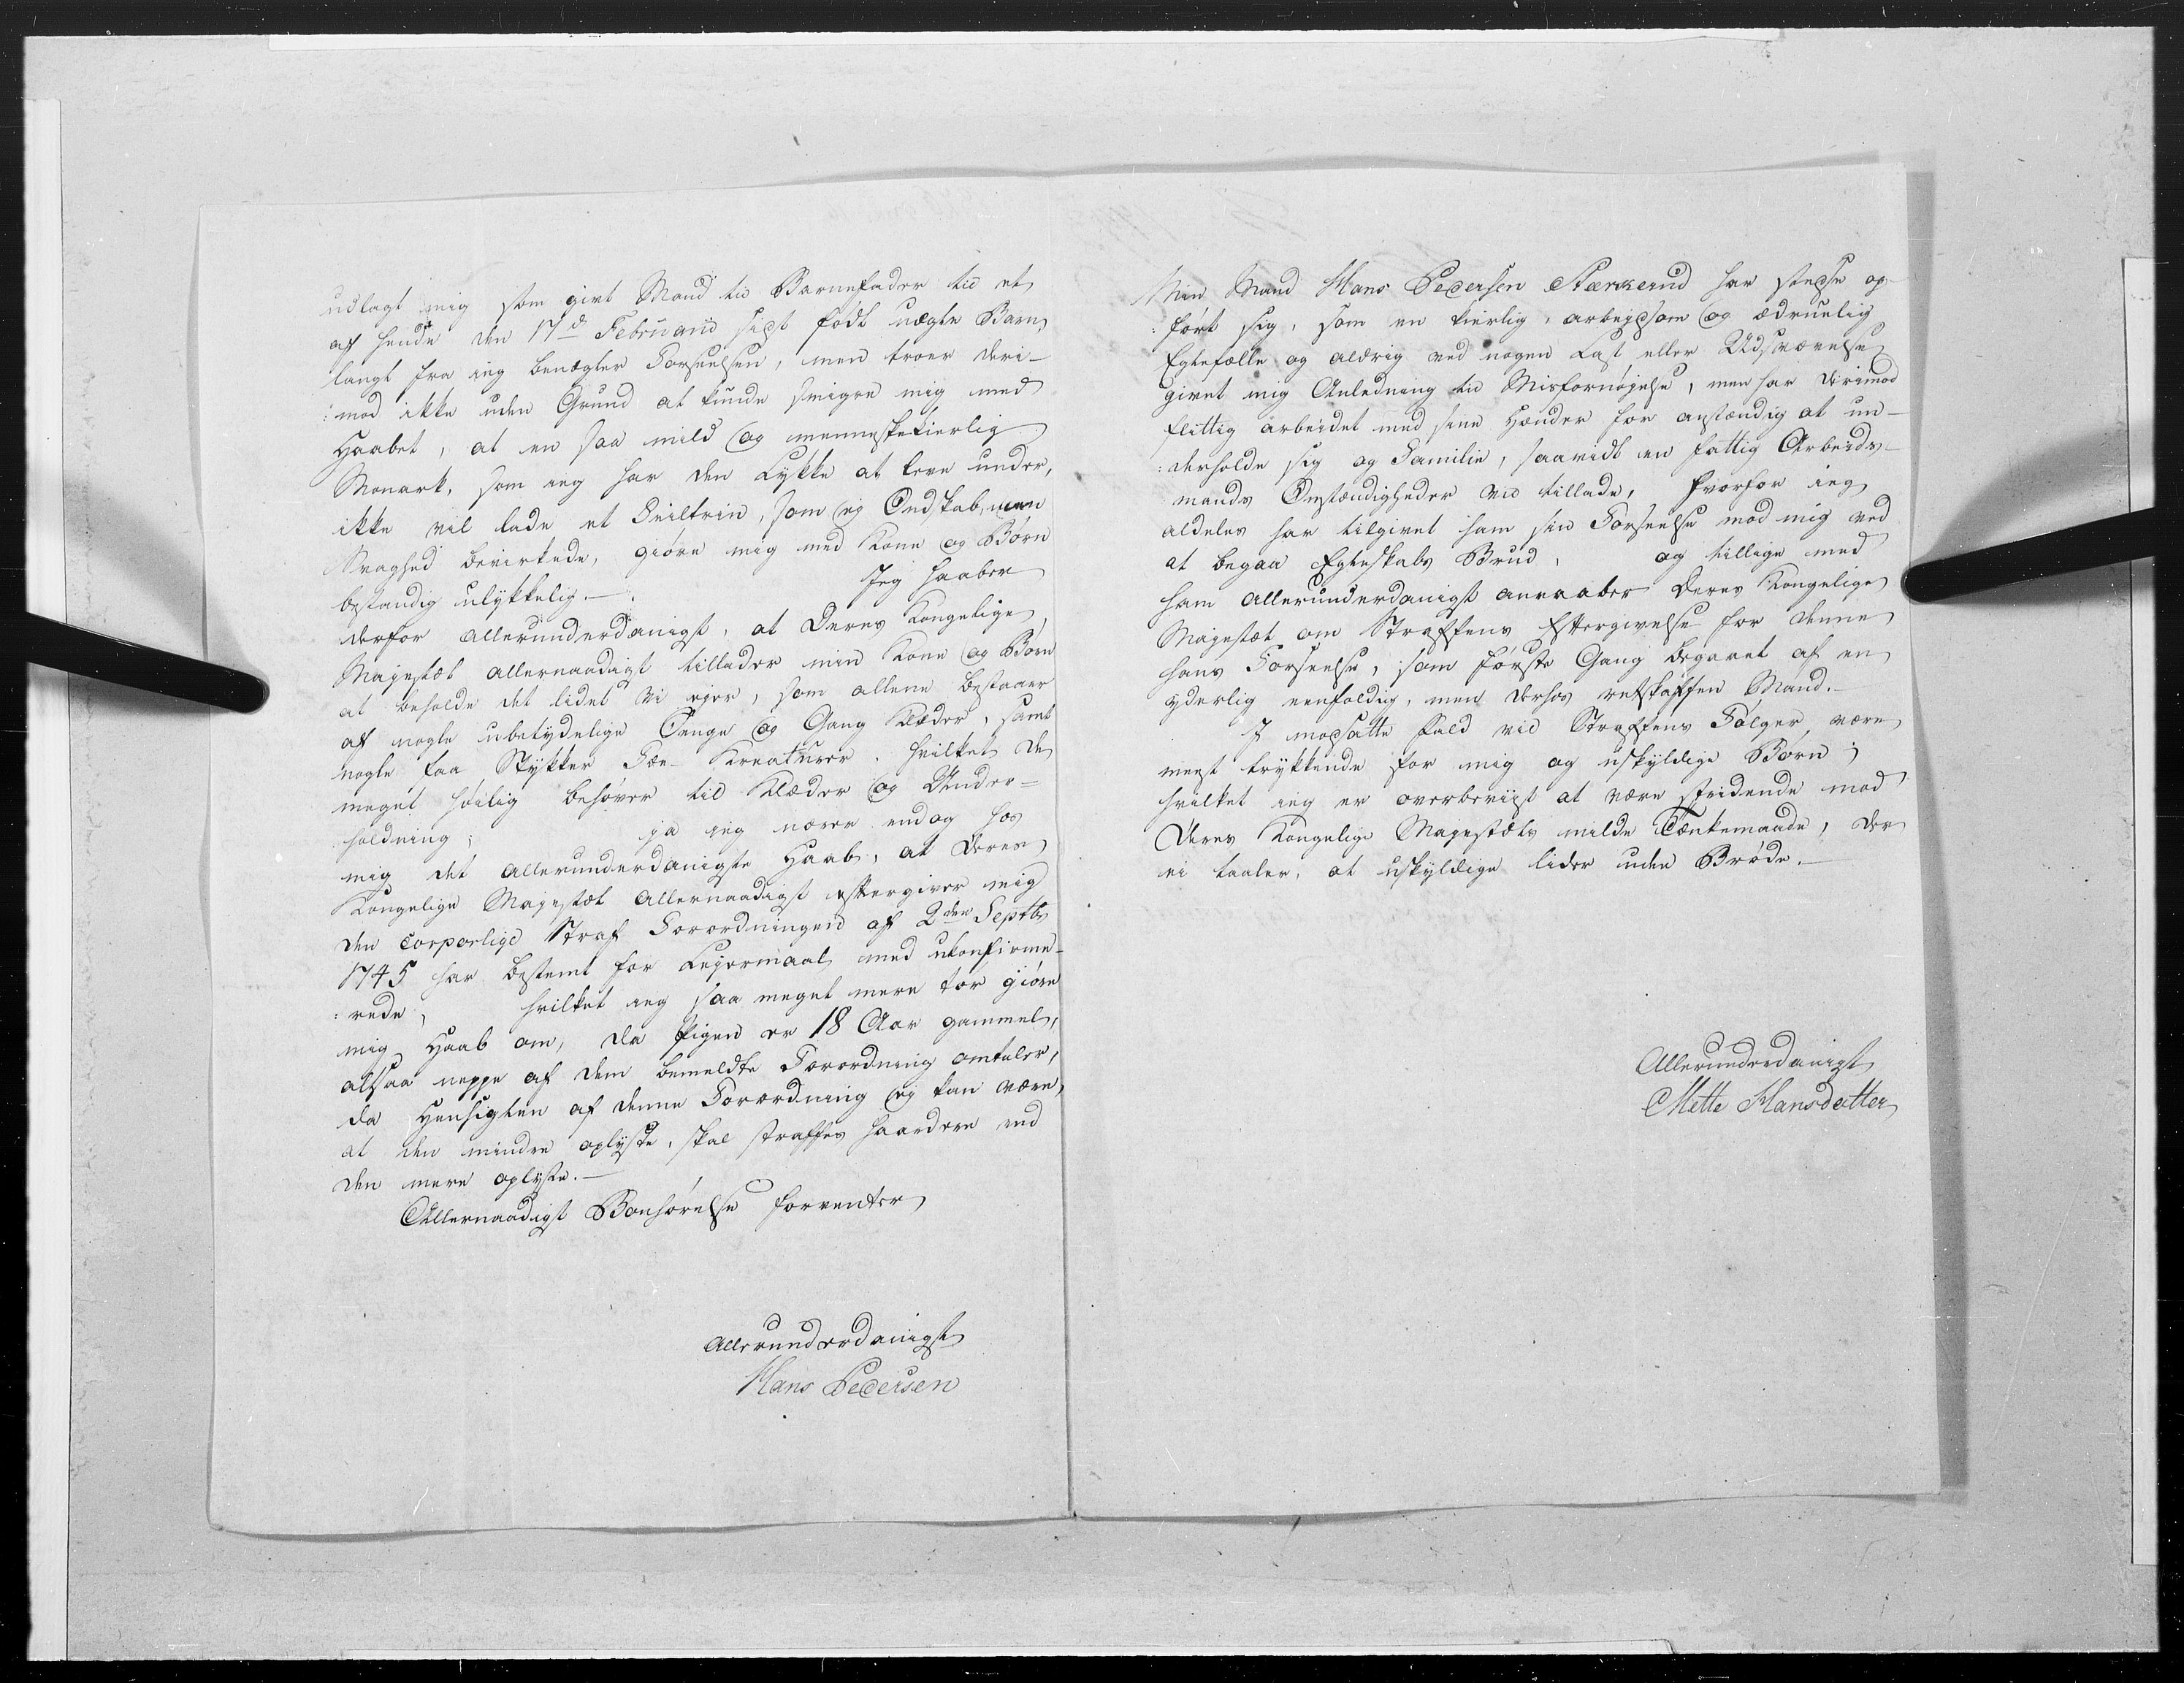 udlagt mig som givt Mand til Barnefader til et
af hende den 17d Februarii sidst født uægte Barn,
langt fra ieg benægter Forseelsen, men troer deri-
:mod ikke uden Grund at kunde smigre mig med
Haabet, at en saa mild og menneskekierlig
Monark, som ieg har den Lykke at leve under,
ikke vil lade et Feiltrin, som ej Ondskab, men
Svaghed bevirkede, giøre mig med Kone og Børn
bestandig ulykkelig. — Jeg haaber
derfor allerunderdanigst, at Deres Kongelige
Majestæt allernaadigst tillader min Kone og Børn
at beholde det lidet vi ejer, som allene bestaaer
af nogle ubetydelige Senge og Gang Klæder, samt
nogle faa Stykker Fæ-Kreaturer, hvilket de
meget høilig behøver til Klæder og Under-
holdning; ja jeg nærer endog hos
mig det allerunderdanigste Haab, at Deres
Kongelige Majestæt allernaadigst eftergiver mig
den corporlige Straf Forordningen af 2den Septbr
1745 har bestemt for Lejermaal med ukonfirme-
:rede, hvilket ieg saa meget mere tør giøre
mig Haab om, da Pigen er 18 Aar gammel,
altsaa neppe af dem bemeldte Forordning omtaler,
da Hensigten af denne Forordning ej kan være,
at den mindre oplyste, skal straffes haardere end
den mere oplyste. —
Allernaadigst Bønhørelse forventer
Allerunderdanigst
Hans Pedersen
Min Mand Hans Pedersen Stærkerud har stedse op-
:ført sig, som en kierlig, arbejdsom og ædruelig
Egtefælle og aldrig ved nogen Last eller Udsvævelse
givet mig Anledning til Misfornøjelse, men har derimod
flittig arbeidet med sine Hænder for anstændig at un-
:derholde sig og Familie, saavidt en fattig Arbeids-
mands Omstændigheder vil tillade, hvorfor ieg
aldeles har tilgivet ham sin Forseelse mod mig ved
at begaa Egteskabs Brud, og tillige med
ham allerunderdanigst anraaber Deres Kongelige
Majestæt om Straffens Eftergivelse for denne
hans Forseelse, som første Gang begaaet af en
yderlig eenfoldig, men derhos retskaffen Mand. —
I modsatte Fald vil Straffens Følger være
meest trykkende for mig og uskyldige Børn;
hvilket ieg er overbeviist at være stridende mod
Deres Kongelige Majestæts milde Tænkemaade, der
ei taaler, at uskyldige lider uden Brøde. —
Allerunderdanigst
Mette Hansdatter